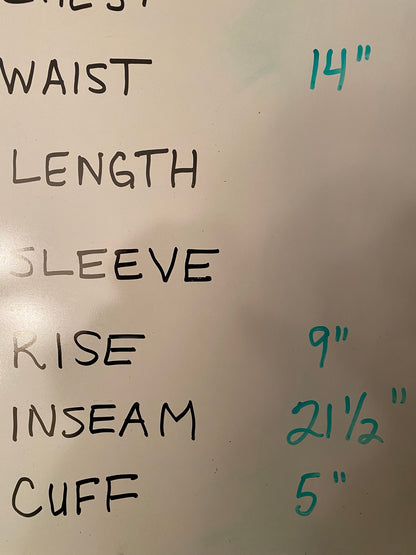 WAIST 14"
LENGTH
SLEEVE
RISE 9"
INSEAM 21 1/2"
CUFF 5"